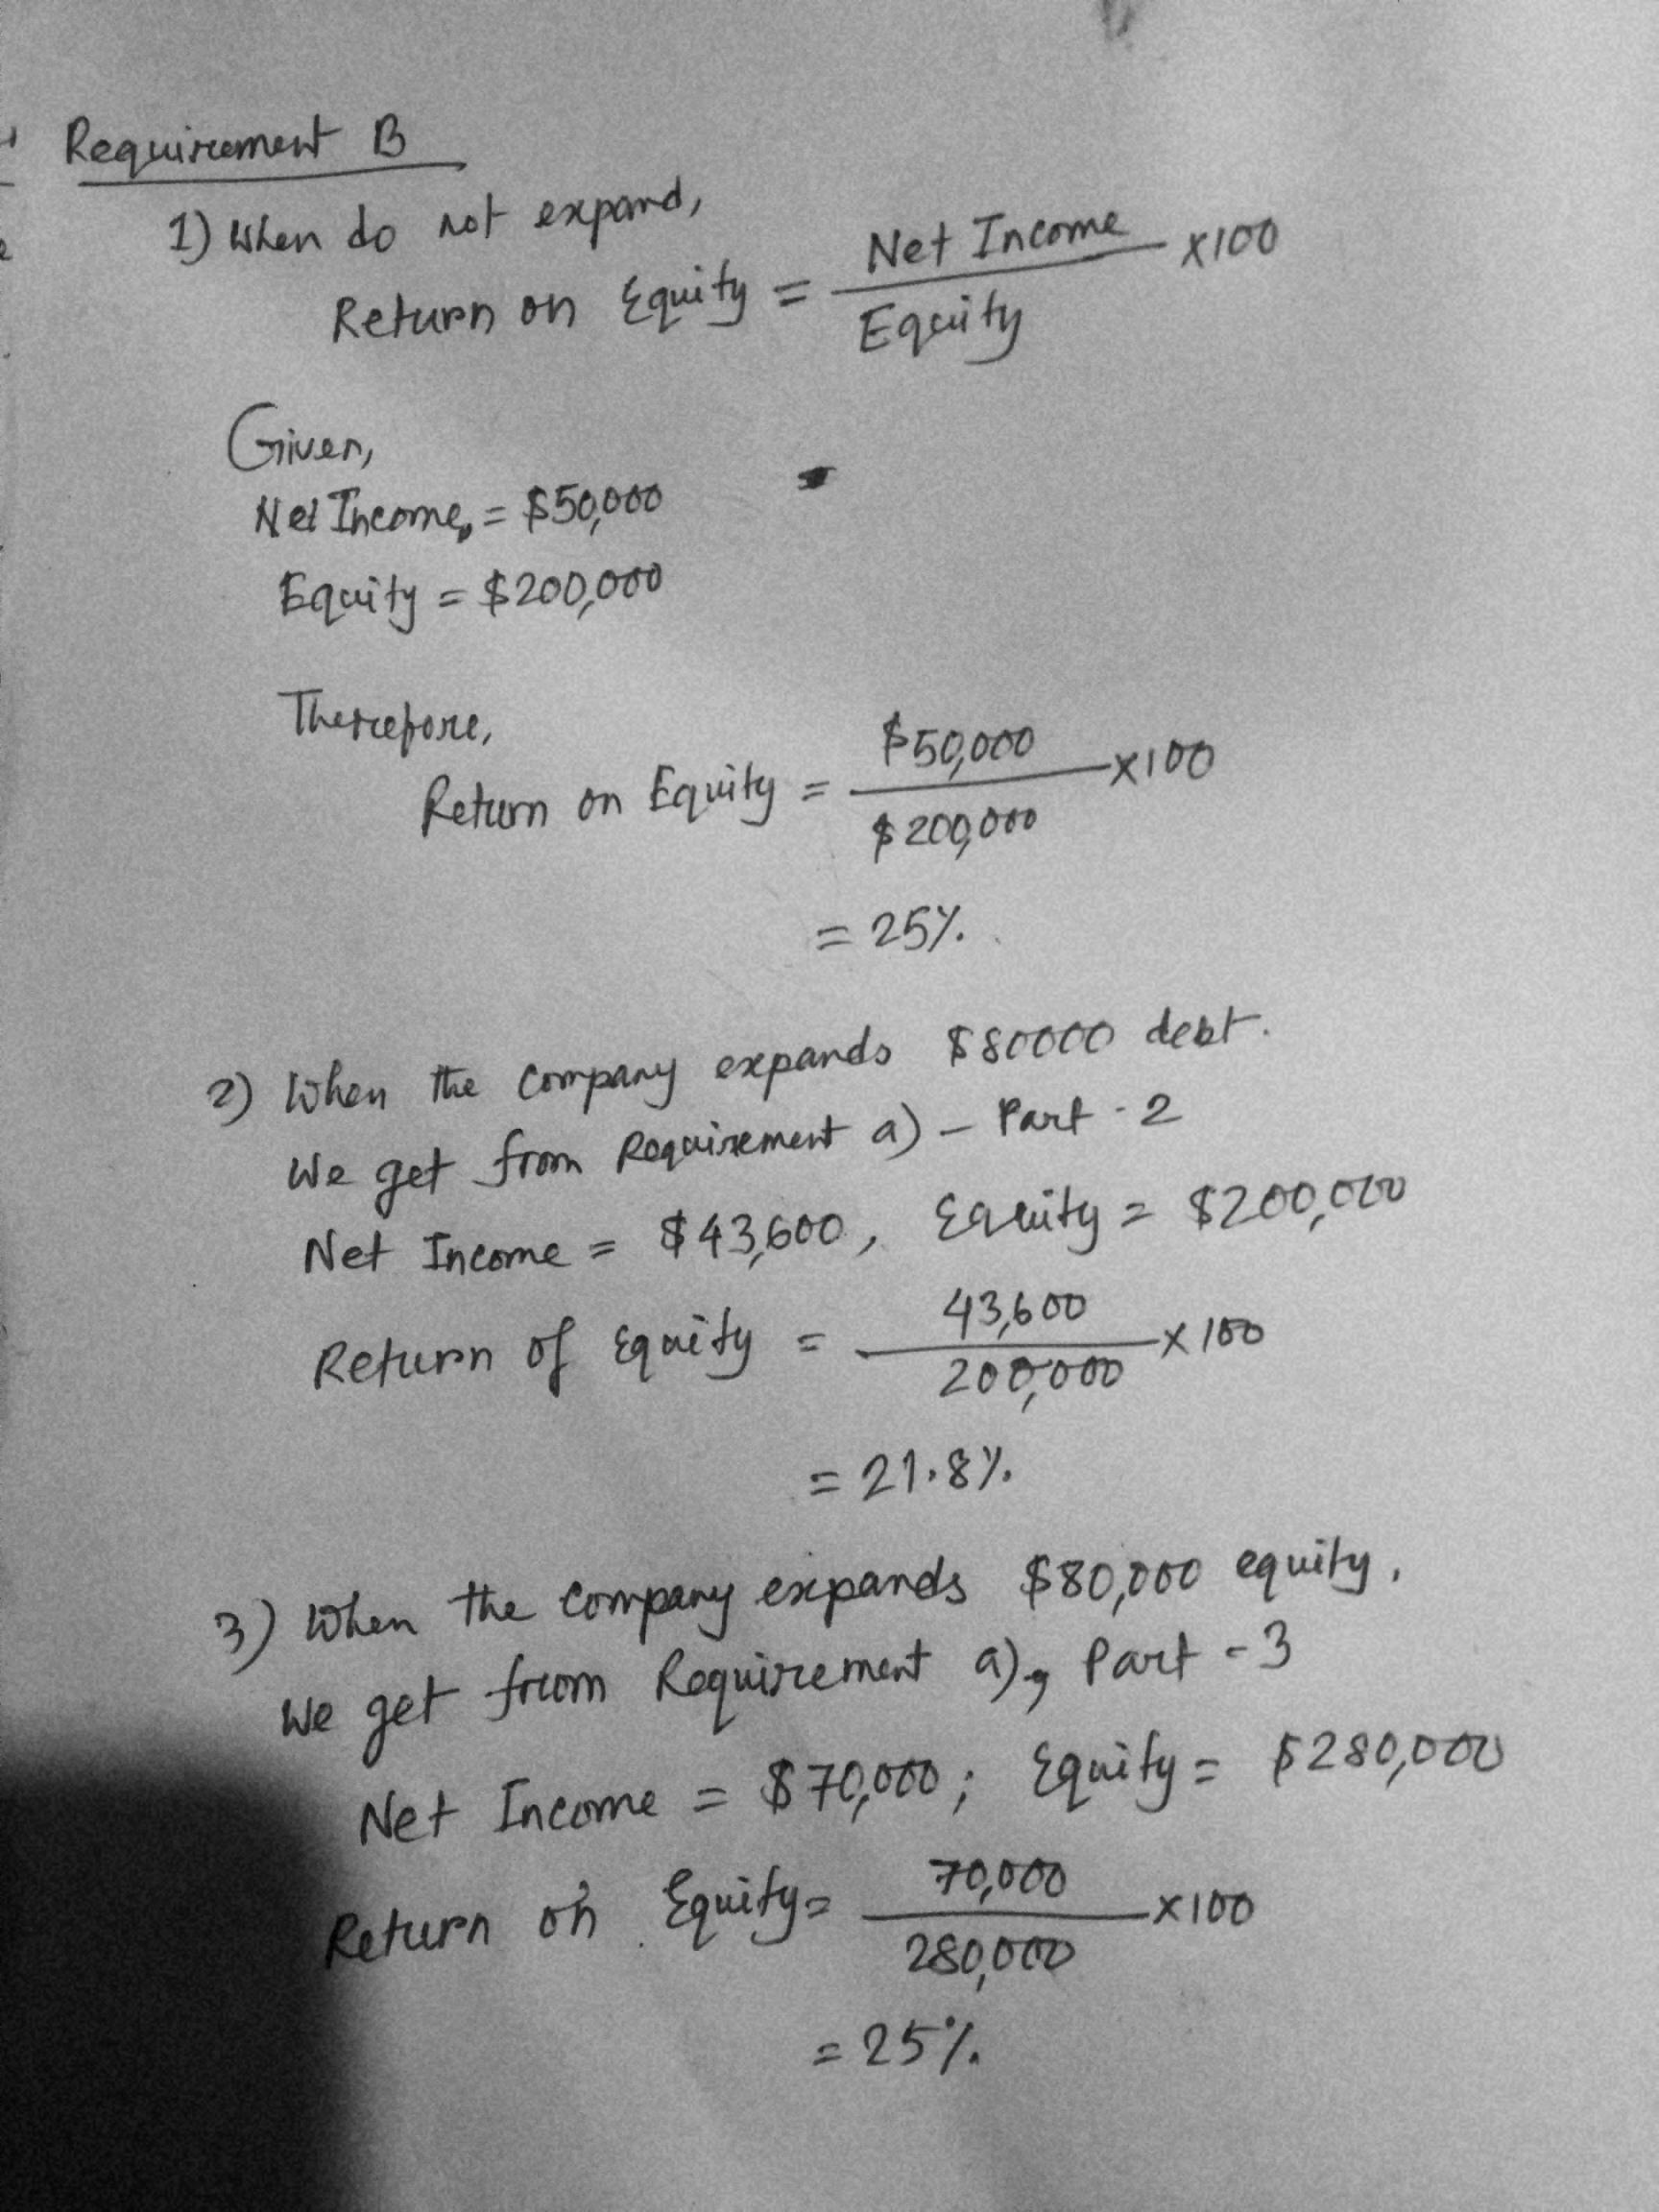 Requirement B
1) When do not expand,
Return on Equity = Net Income / Equity ×100
Given,
Net Income, = $50,000
Equity = $200,000
Therefore,
Return on Equity = $50,000 / $200,000 ×100
= 25%.
2) When the company expands $80000 debt.
We get from Requirement a) - Part - 2
Net Income = $43,600, Equity = $200,000
Return of Equity = 43,600 / 200,000 × 100
= 21.8%.
3) When the company expands $80,000 equity.
We get from Requirement a), Part - 3
Net Income = $70,000; Equity = $280,000
Return on Equity = 70,000 / 280,000 ×100
= 25%.